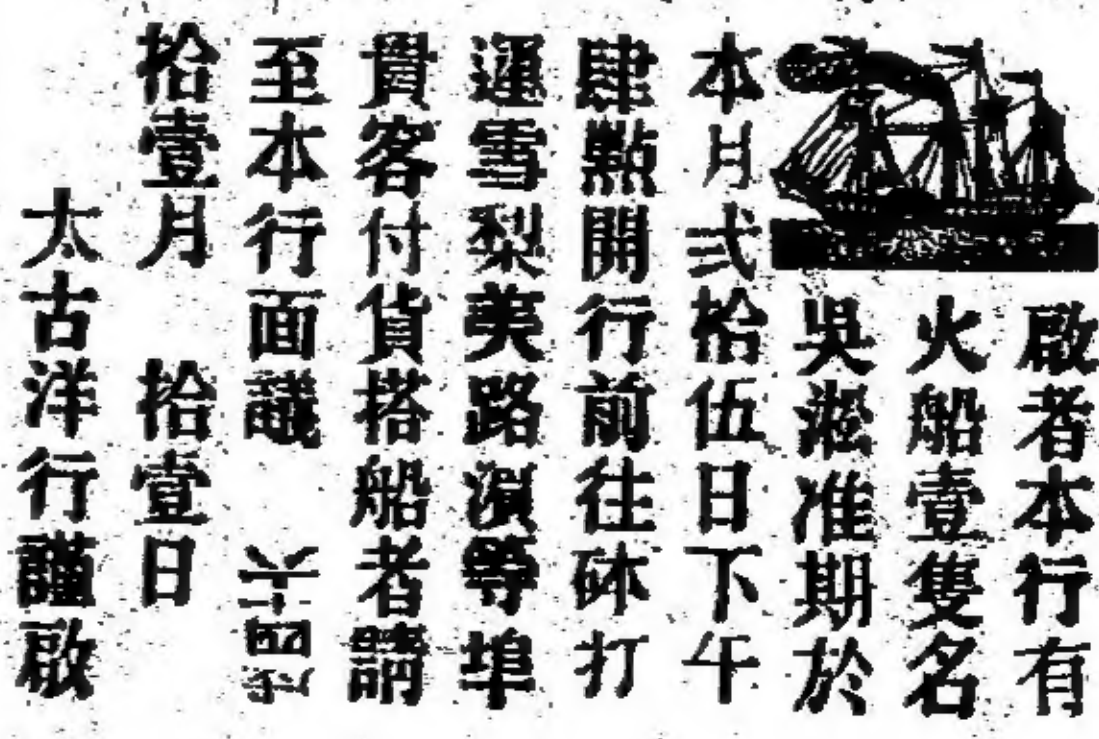 啟者本行有
火船壹隻名
吳淞准期於
本月弍拾伍日下午
肆點開行前往砵打
運雪梨美路濵等埠
貴客付貨搭船者請
至本行面議
拾壹月 拾壹日
太古洋行謹啟